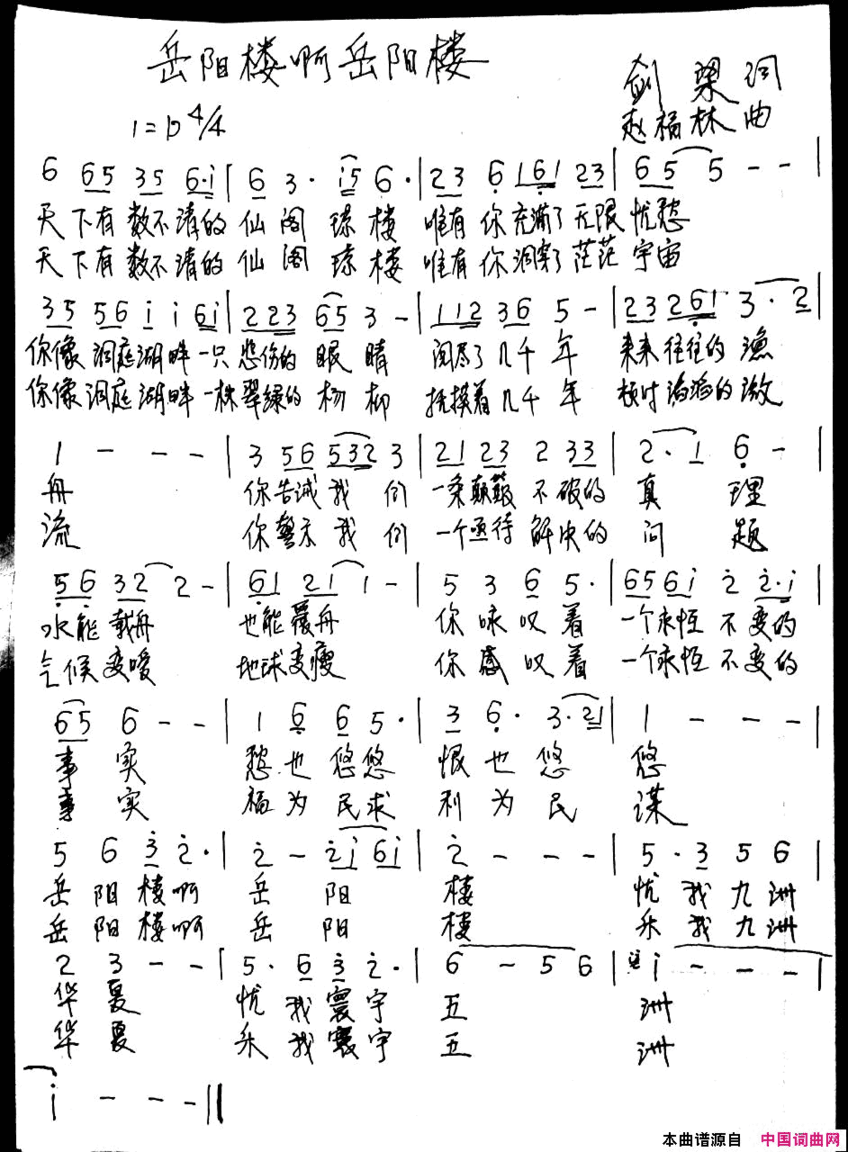 岳阳楼啊岳阳楼
剑梁词
1=D 4/4
赵福林曲
6 65 35 6·i | 6 3· i5 6· | 23 6 161 23 | 65 5 - - |
天下有数不清的仙阁琼楼 唯有你充满了无限忧愁
天下有数不清的仙阁琼楼 唯有你洞穿了茫茫宇宙
35 56 i i 6i | 2 23 65 3 - | 112 36 5 - | 23 261 3·2 |
你像洞庭湖畔一只悲伤的眼睛 阅尽了几千年 来来往往的渔
你像洞庭湖畔一株翠绿的杨柳 抚摸着几千年 顿时滔滔的激
1 - - - | 3 56 532 3 | 21 23 2 33 | 2·1 6 - |
舟 你告诫我们 一条颠簸不破的真理
流 你警示我们 一个亟待解决的问题
56 32 2 - | 61 21 1 - | 5 3 6 5· | 656i 2 2·i |
水能载舟 也能覆舟 你咏叹着 一个永恒不变的
气候变暖 地球变瘦 你感叹着 一个永恒不变的
65 6 - - | 1 6 6 5· | 3 6· 3·21 | 1 - - - |
事实 愁也悠悠 恨也悠悠
事实 福为民求 利为民谋
5 6 3 2· | 2 - 2i 6i | 2 - - - | 5·3 5 6 |
岳阳楼啊 岳阳楼 忧我九洲
岳阳楼啊 岳阳楼 乐我九洲
2 3 - - | 5·6 3 2· | 6 - 5 6 | i - - - |
华夏 忧我寰宇五洲
华夏 乐我寰宇五洲
i - - - ||
本曲谱源自 中国词曲网